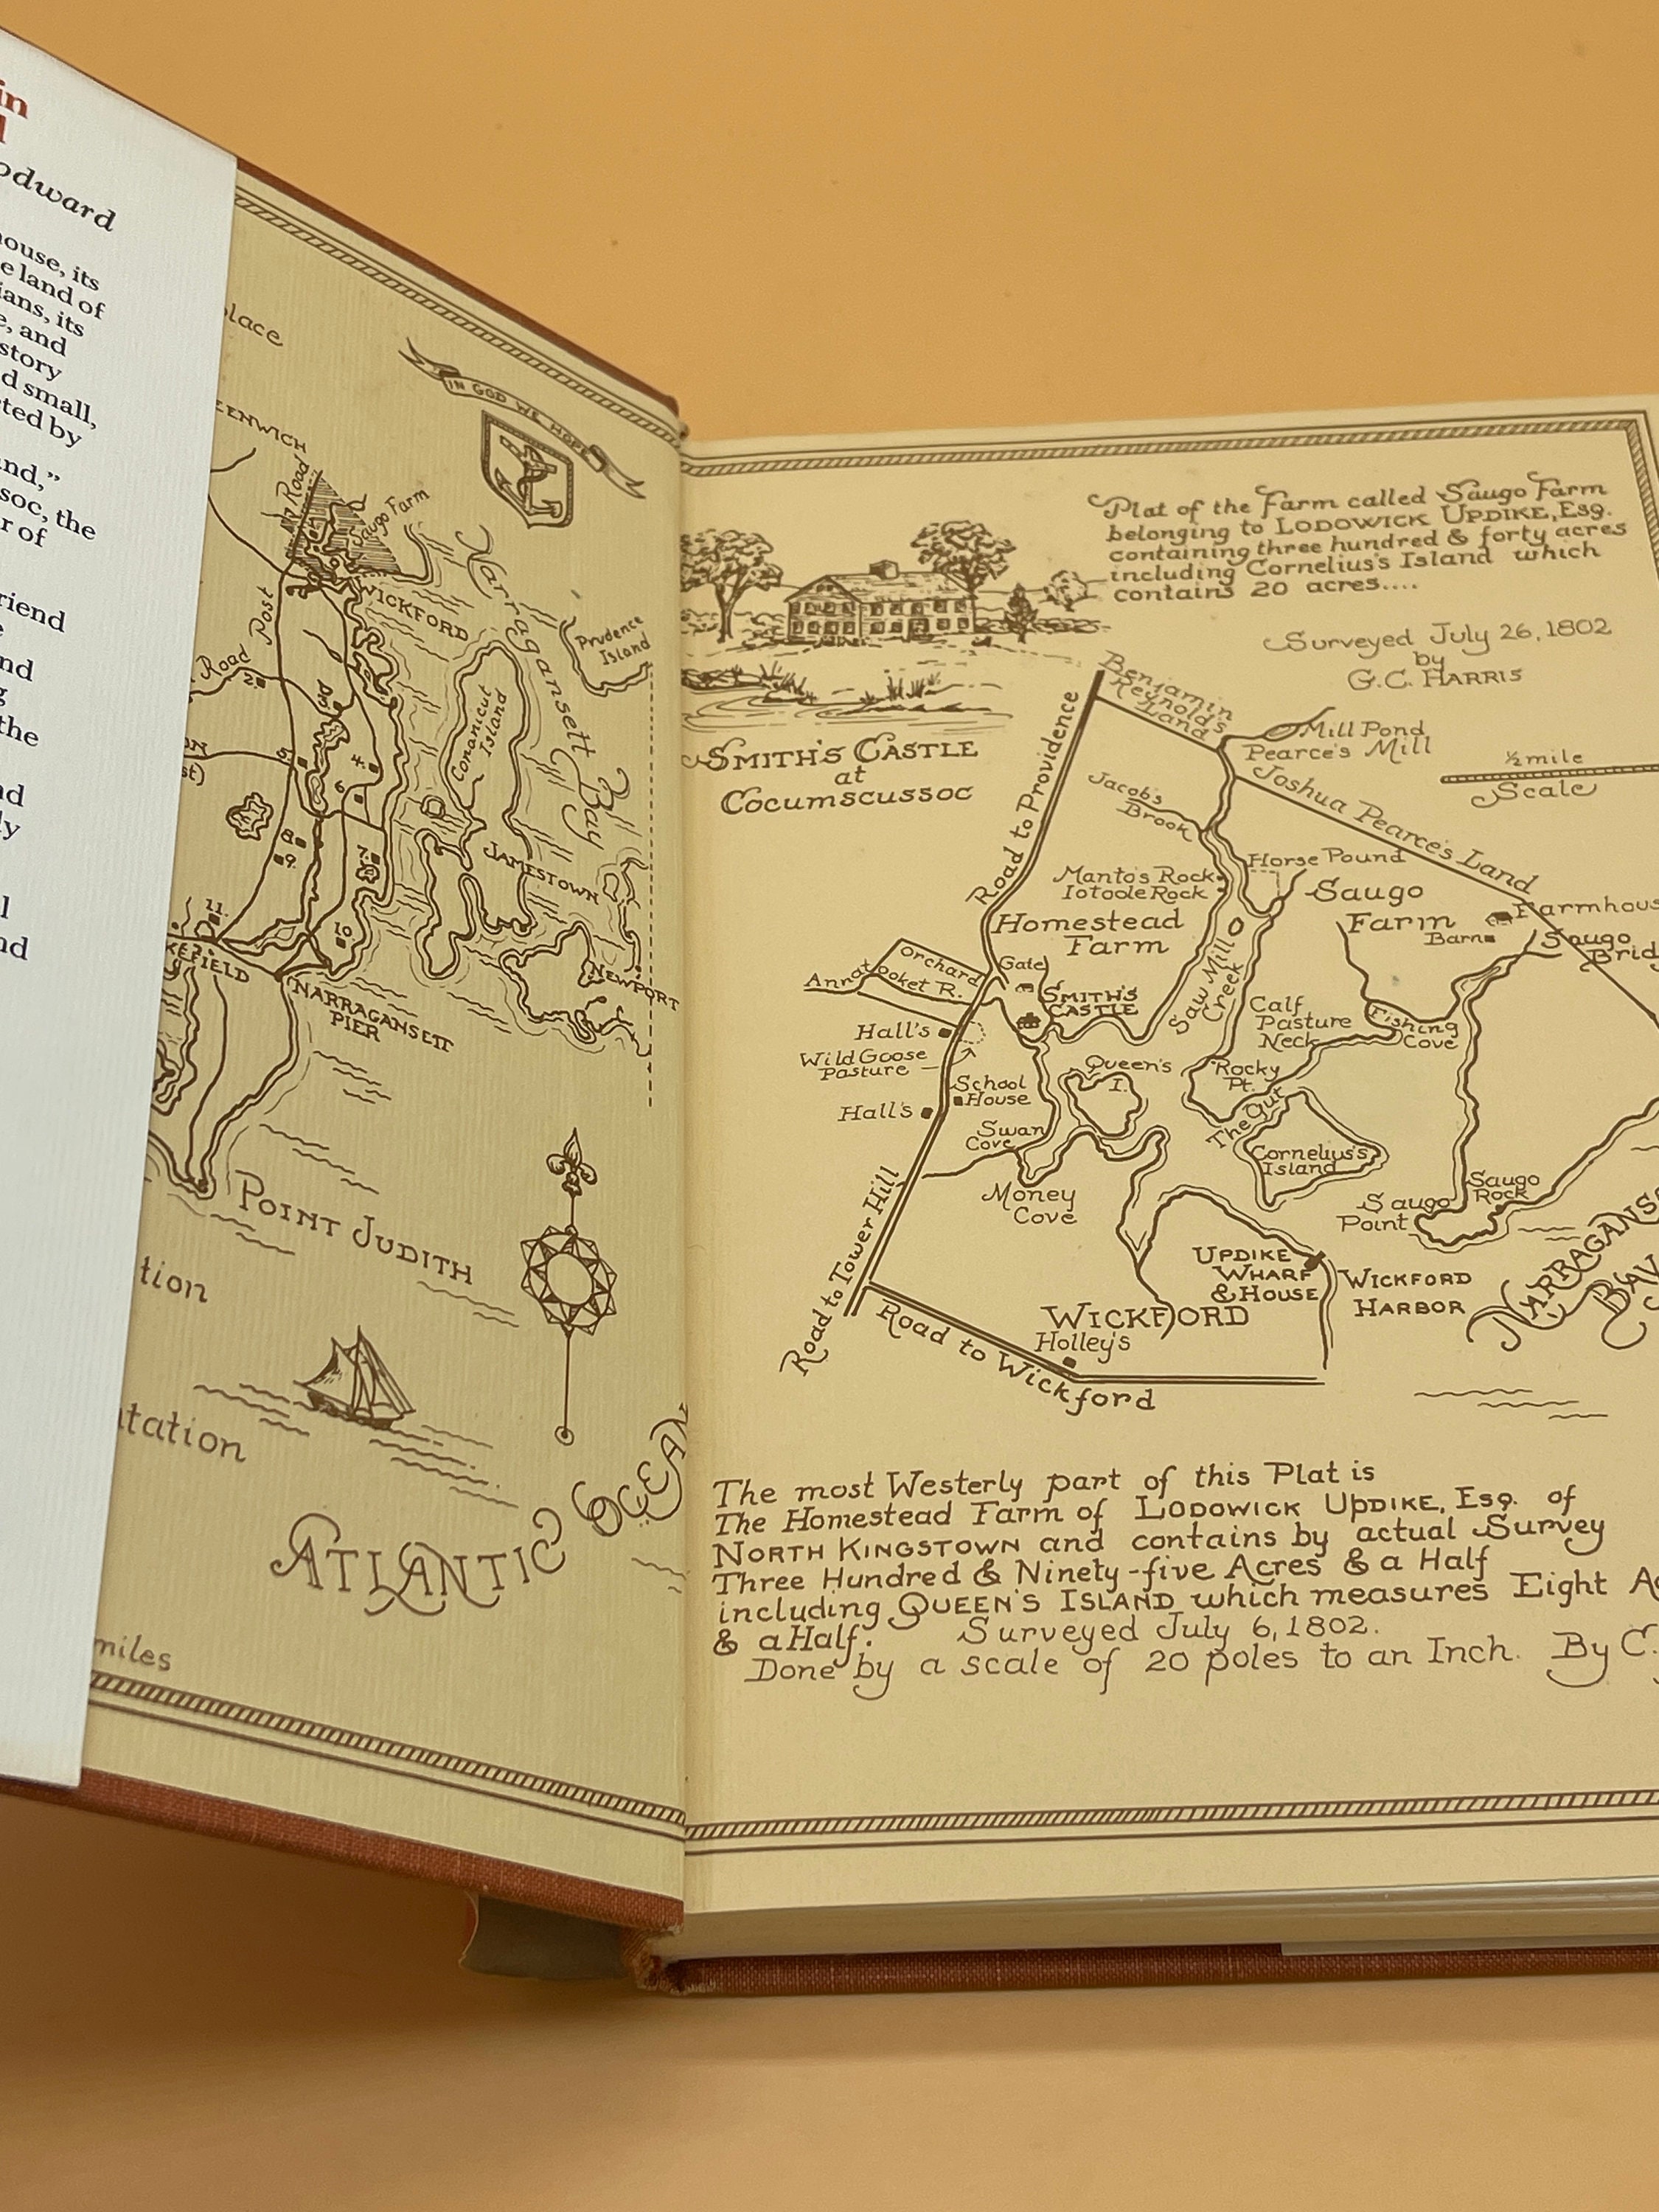 in
odward
house, its
e land of
ians, its
e, and
story
d small,
cted by
and,"
soc, the
r of
riend
e
nd
g
the
nd
ly
l
nd
place
EENWICH
Road
Saugo Farm
IN GOD WE HOPE
WICKFORD
Post
Road
2.
Narragansett Bay
Prudence
Island
Conanicut
Island
5.
4.
6.
8.
9.
7.
10.
11.
JAMESTOWN
NEWPORT
KEFIELD
NARRAGANSETT
PIER
POINT JUDITH
tion
tation
ATLANTIC OCEAN
miles
Plat of the Farm called Saugo Farm
belonging to LODOWICK UPDIKE, Esq.
containing three hundred & forty acres
including Cornelius's Island which
contains 20 acres....
Surveyed July 26, 1802
by
G.C. HARRIS
SMITH'S CASTLE
at
COCUMSCUSSOC
Benjamin
Reynold's
Land
Mill Pond
Pearce's Mill
½ mile
Scale
Road to Providence
Jacob's
Brook
Joshua Pearce's Land
Horse Pound
Manto's Rock
Iotoole Rock
Saugo
Farm
Farmhous
Barn
Saugo
Brid
Homestead
Farm
Orchard
Gate
Annatooket R.
SMITH'S
CASTLE
Saw Mill
Creek
Calf
Pasture
Neck
Fishing
Cove
Hall's
Wild Goose
Pasture
Queen's
I.
Rocky
Pt.
School
House
Hall's
The Gut
Swan
Cove
Cornelius's
Island
Money
Cove
Saugo
Rock
Saugo
Point
Road to Tower Hill
UPDIKE
WHARF
& HOUSE
WICKFORD
HARBOR
NARRAGANS
BAY
WICKFORD
Holley's
Road to Wickford
The most Westerly part of this Plat is
The Homestead Farm of LODOWICK UPDIKE, Esq. of
NORTH KINGSTOWN and contains by actual Survey
Three Hundred & Ninety-five Acres & a Half
including QUEEN'S ISLAND which measures Eight Ac
& a Half. Surveyed July 6, 1802.
Done by a scale of 20 poles to an Inch. By C.